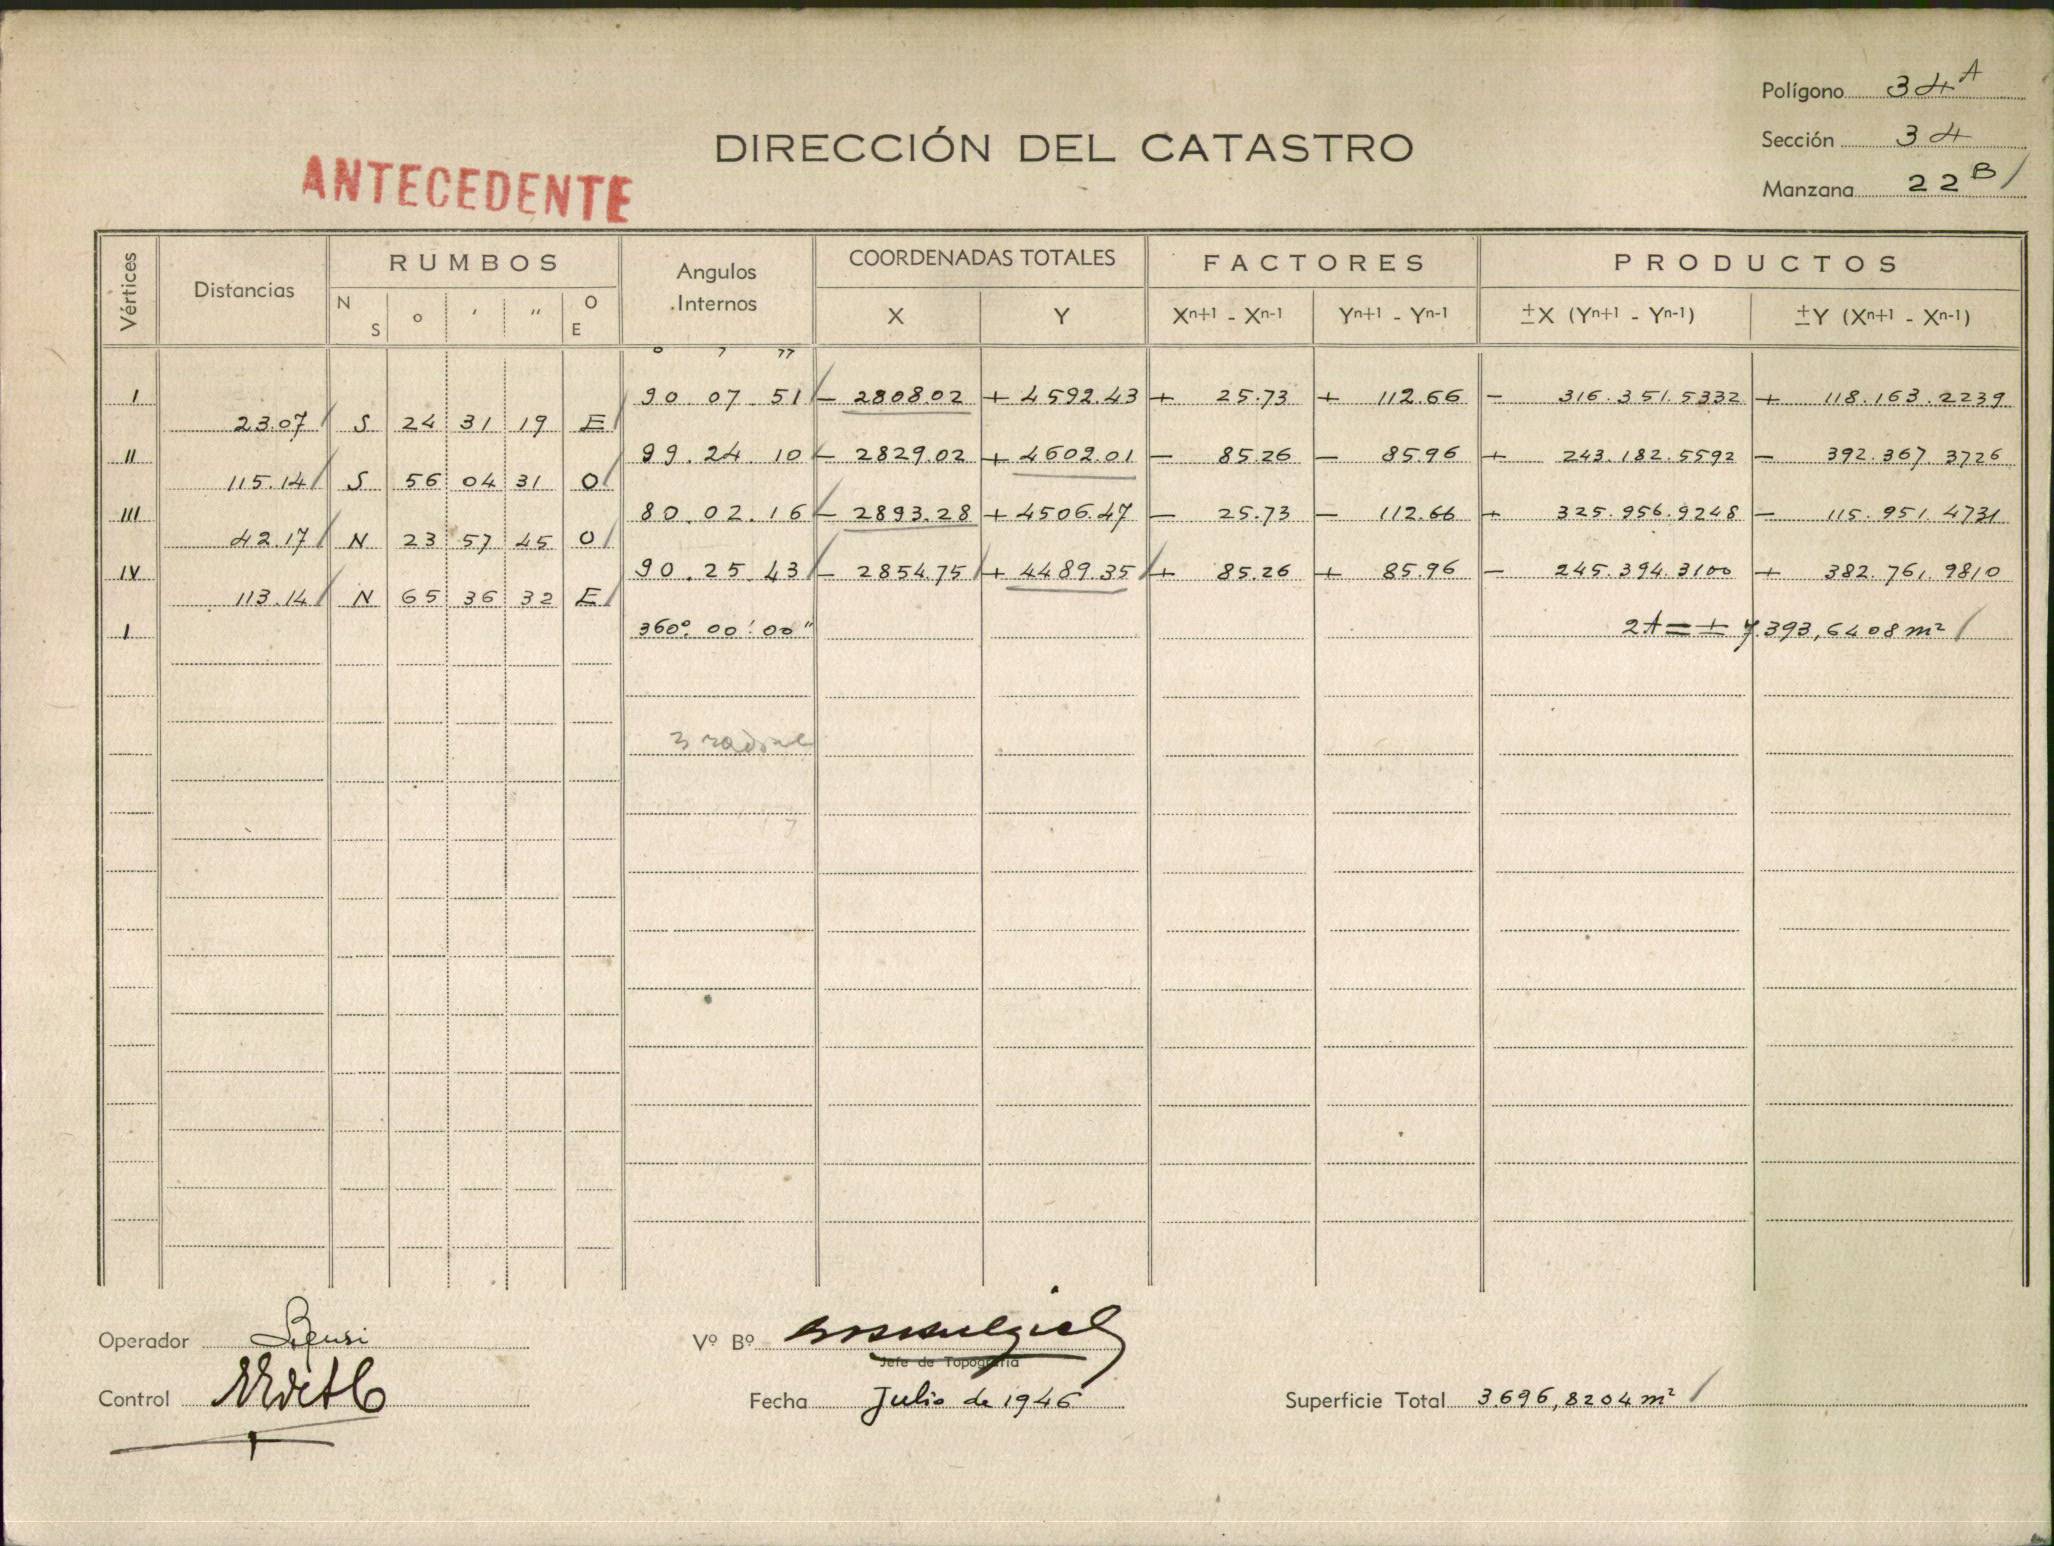 Polígono 34 A
DIRECCIÓN DEL CATASTRO
Sección 34
ANTECEDENTE
Manzana 22 B
Vértices Distancias RUMBOS Angulos Internos COORDENADAS TOTALES FACTORES PRODUCTOS
N S o ' " O E X Y Xn+1 - Xn-1 Yn+1 - Yn-1 ±X (Yn+1 - Yn-1) ±Y (Xn+1 - Xn-1)
o ' "
I 90 07 51 - 2808.02 + 4592.43 + 25.73 + 112.66 - 316.351.5332 + 118.163.2239
23.07 S 24 31 19 E
II 99.24.10 - 2829.02 + 4602.01 - 85.26 - 85.96 + 243.182.5592 - 392.367.3726
115.14 S 56 04 31 O
III 80.02.16 - 2893.28 + 4506.47 - 25.73 - 112.66 + 325.956.9248 - 115.951.4731
42.17 N 23 57 45 O
IV 90.25.43 - 2854.75 + 4489.35 + 85.26 + 85.96 - 245.394.3100 + 382.761.9810
113.14 N 65 36 32 E
I 360° 00' 00" 2A = ± 7.393,6408 m²
Operador
Vº Bº
Jefe de Topografía
Control
Fecha Julio de 1946
Superficie Total 3.696,8204 m²